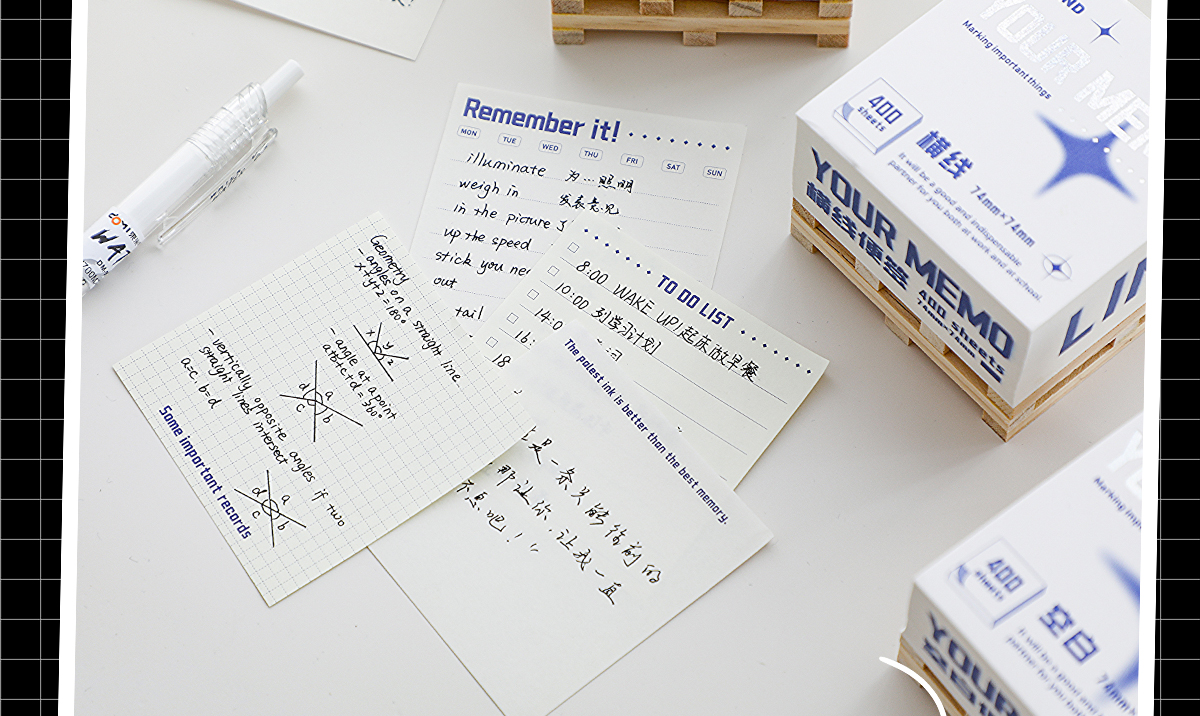 Remember it!
MON TUE WED THU FRI SAT SUN
illuminate 为…照明
weigh in 发表意见
in the picture
up the speed
stick you
out
tail
TO DO LIST
8:00 WAKE UP!起床做早餐
10:00 列学习计划
14:0
16:
18
The palest ink is better than the best memory.
是一条只能往前的
那让你,让我一直
吧!!"
Geometry
- angles on a straight line
x+y+z=180°
x y z
- angle at a point
a+b+c+d=360°
a
d b
c
- vertically opposite angles if two
straight lines intersect
a=c, b=d
a
d b
c
Some important records
Marking important things
YOUR MEMO
400
sheets
横线 74mm×74mm
It will be a good and indispensable
partner for you both at work and at school
YOUR MEMO
横线便签 400 sheets
74mm×74mm
LIN
Marking impo
400
sheets
空白 74mm
It will be a good and
partner for you bot
YOUR